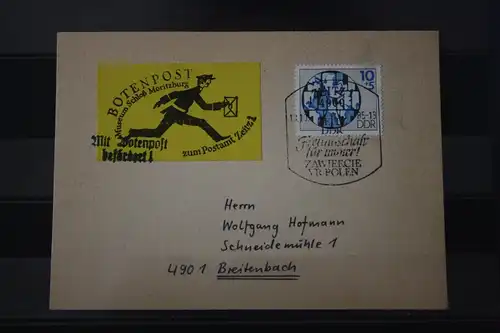 BOTENPOST
Museum Schloß Moritzburg
zum Postamt Zeitz 1
Mit Botenpost
befördert!
10
+5
4900
85-13
DDR
DDR
Freundschaft
für immer!
ZAWIERCIE
VR POLEN
Herrn
Wolfgang Hofmann
Schneidemühle 1
4901 Breitenbach